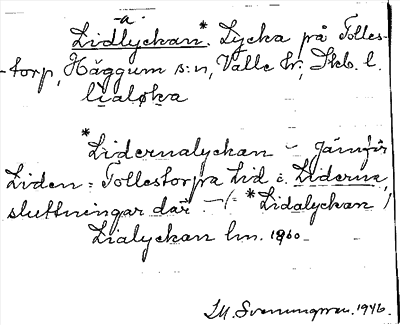 -a-
Lidlyckan.* Lycka på Tolles-
-torp, Häggum s:n, Valle hr, Skb. l.
li̱aløka
*Lidernalyckan - jämför
Liden: Tollestorpa Lid o. Liderna,
sluttningar där. -(- *Lidalyckan)
Lialyckan lm. 1860
Sveningson. 1946.